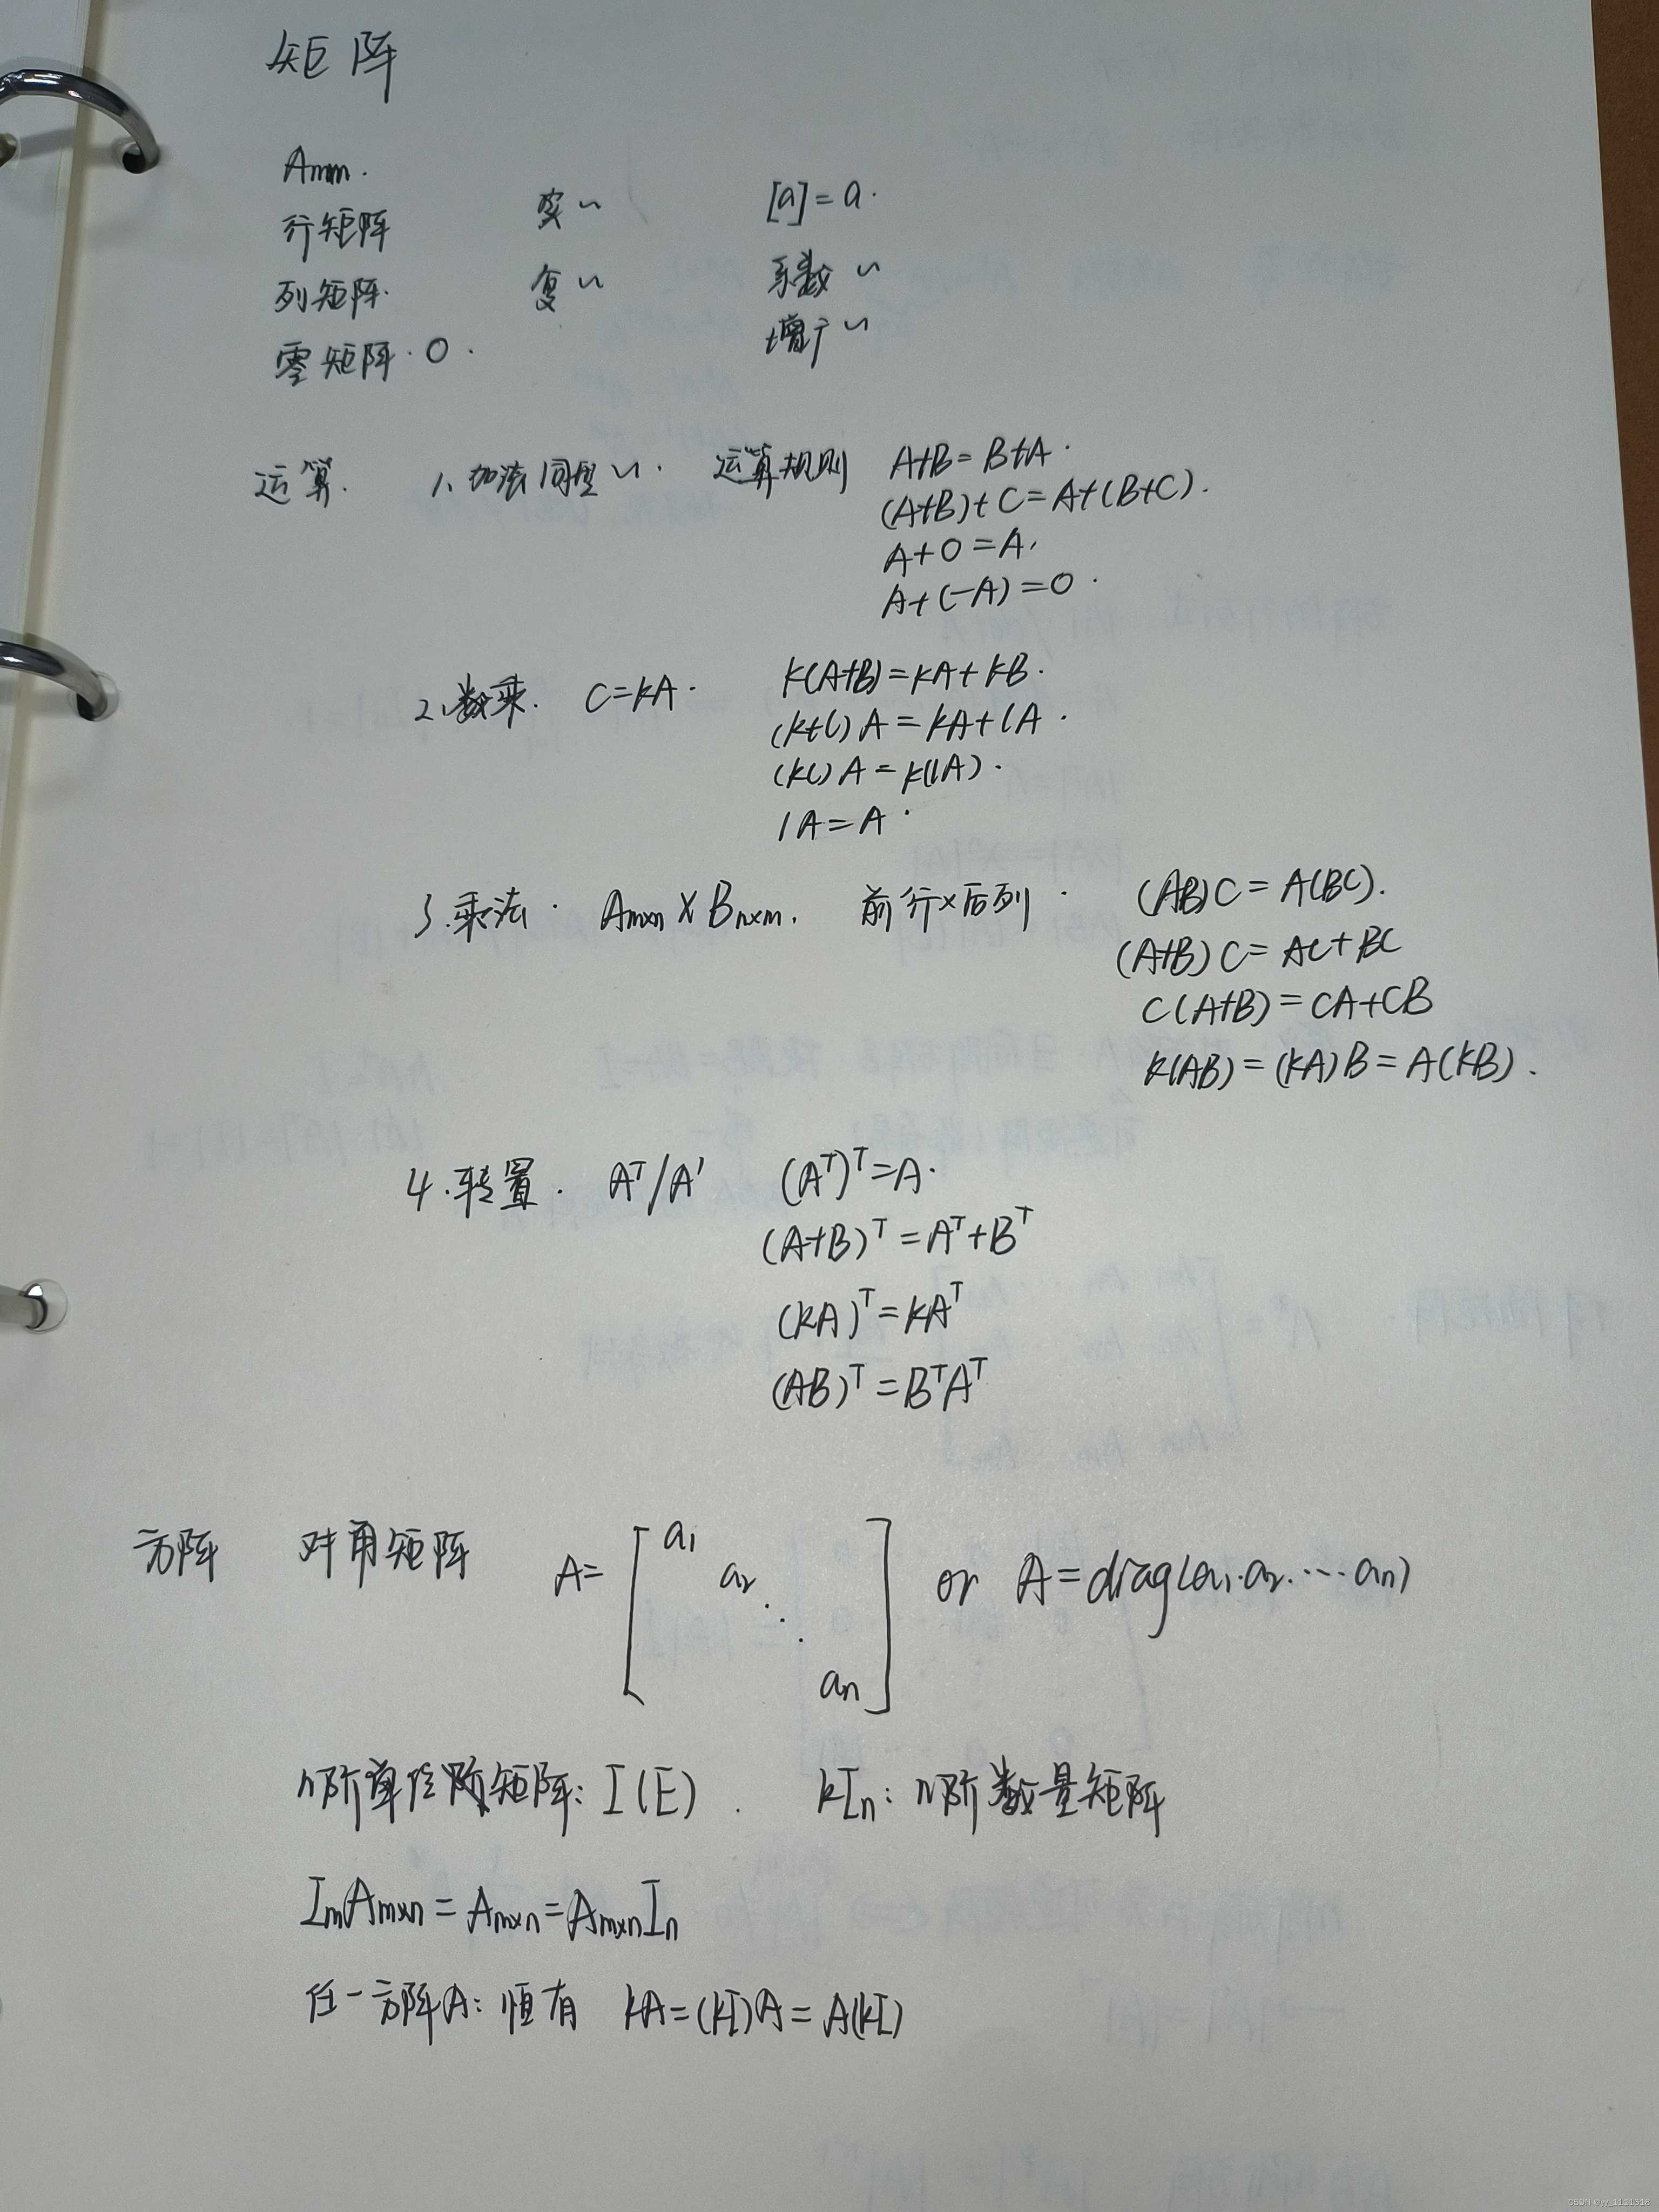 矩阵
Amn.
行矩阵 实~ [a]=a.
列矩阵. 复~ 系数~
零矩阵. 0. 增广~
运算. 1、加法 同型~. 运算规则 A+B=B+A.
(A+B)+C=A+(B+C).
A+0=A.
A+(-A)=0.
2、数乘. C=kA. k(A+B)=kA+kB.
(k+l)A=kA+lA.
(kl)A=k(lA).
1A=A.
3.乘法. Am×n×Bn×m. 前行×后列. (AB)C=A(BC).
(A+B)C=AC+BC
C(A+B)=CA+CB
k(AB)=(kA)B=A(kB).
4.转置. Aᵀ/A' (Aᵀ)ᵀ=A.
(A+B)ᵀ=Aᵀ+Bᵀ
(kA)ᵀ=kAᵀ
(AB)ᵀ=BᵀAᵀ
方阵 对角矩阵 A=[a₁ a₂ ⋱ aₙ] or A=diag(a₁.a₂.…aₙ)
n阶单位矩阵: I(E). kIn: n阶数量矩阵
ImAm×n=Am×n=Am×nIn
任一方阵A: 恒有 kA=(kI)A=A(kI)
CSDN @yy_1111618